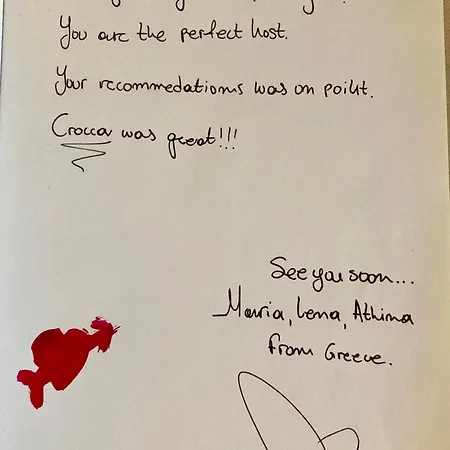 You are the perfect host.
Your recommedations was on point.
Crocca was great!!!
See you soon...
Maria, Lena, Athina
From Greece.